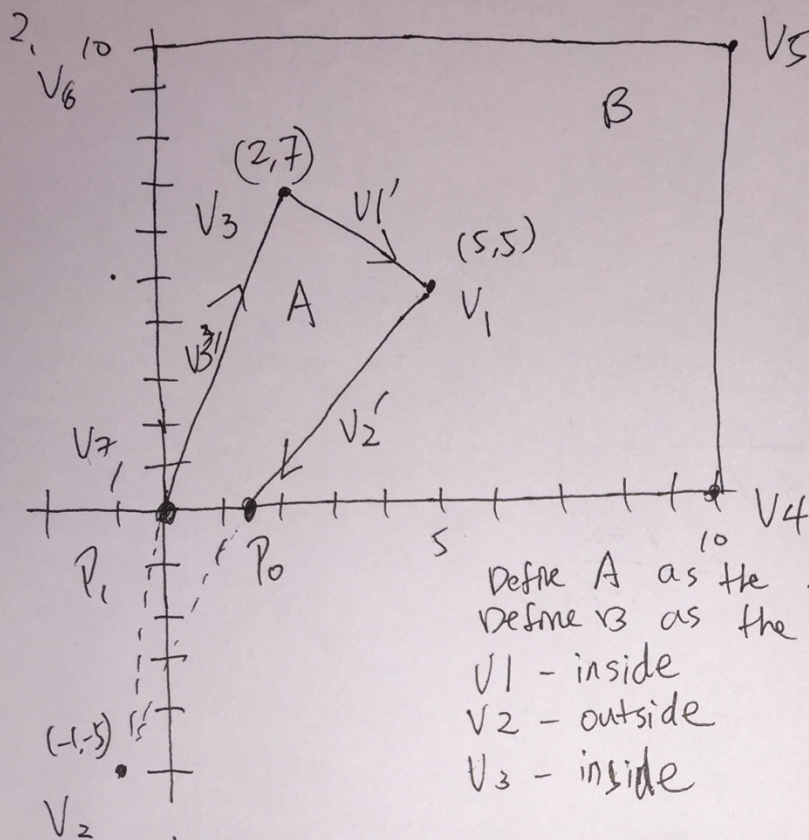 2.
10
V5
V6
B
(2,7)
V3
V1'
(5,5)
A
V1
V3'
V2'
V7
V4
5
10
P1
P0
Define A as the
Define B as the
V1 - inside
V2 - outside
V3 - inside
(-1,-5)
V2